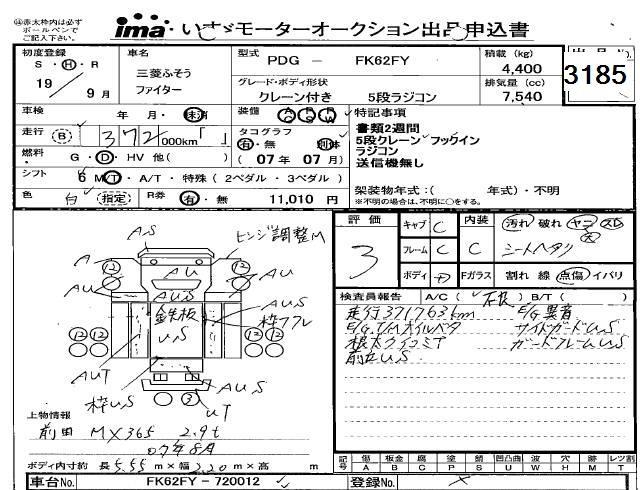 ㊟赤太枠内は必ず
ボールペンで
ご記入下さい。
ima いすゞモーターオークション出品申込書
初度登録
S・H・R
19 9月
車名
三菱ふそう
ファイター
型式
PDG - FK62FY
グレード・ボディ形状
クレーン付き 5段ラジコン
積載 (kg)
4,400
排気量 (cc)
7,540
3185
車検 年 月・未済
装備 AC PS PW
特記事項
書類2週間
5段クレーン フックイン
ラジコン
送信機無し
走行 B 372,000km「 」
タコグラフ
有・無 別体
(07年 07月)
燃料 G・D・HV 他( )
シフト 6 MT・A/T・特殊 (2ペダル・3ペダル)
架装物年式:( 年式)・不明
※不明の場合は、不明に〇をする。
色 白 (指定) R券 有・無 11,010 円
評価
3
キャブ C
フレーム C
ボディ D
内装 C
汚れ 破れ ヤニ スレ
大
シートヘタリ
Fガラス 割れ 線 点傷 イバリ
検査員報告 A/C( 不良 ) B/T( )
走行371763km E/G異音
E/G,T/Mオイルベタ サイドガードU,S
根太クイコミT ガードフレームU,S
前立U,S
AS
ヒンジ調整M
A
12
12
AU
AU
AU
AUS
鉄板
U,S
枠フフレ
12 12
12 12
A
AUT
AUS
枠U,S
3
UT
上物情報
前田 MX365 2.9t
07年8月
ボディ内寸約 長 5.55 m×幅 2.20 m×高 m
記号 傷 板金 腐 塗 錆 凹凸曲 波 穴 跡 レツ割
A B C P S U W H M T
車台No. FK62FY-720012
登録No.